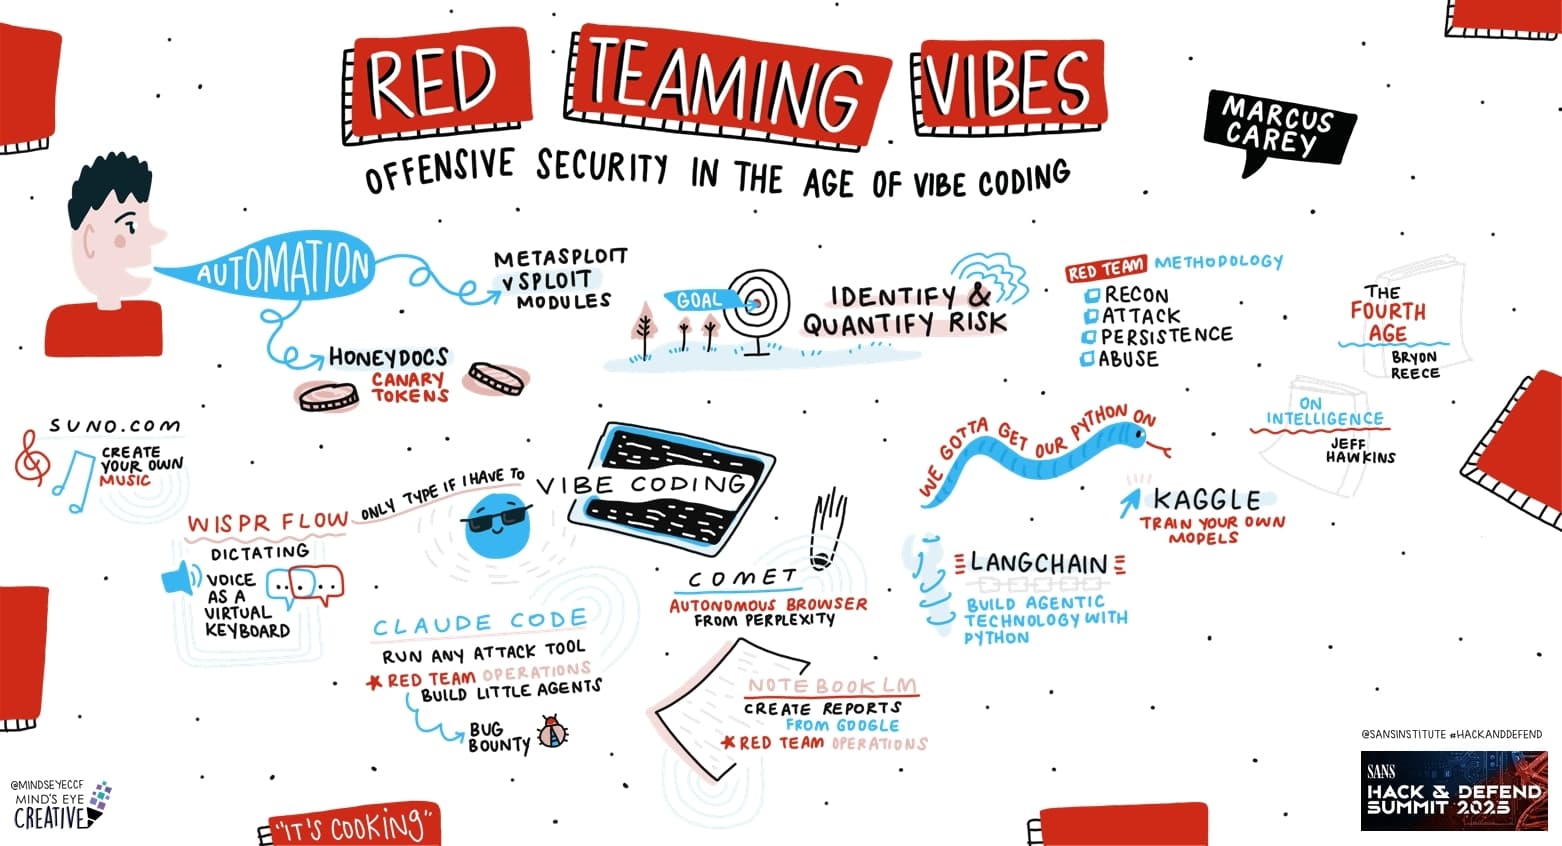 RED TEAMING VIBES
OFFENSIVE SECURITY IN THE AGE OF VIBE CODING
MARCUS
CAREY
AUTOMATION
METASPLOIT
vSPLOIT
MODULES
HONEYDOCS
CANARY
TOKENS
GOAL
IDENTIFY &
QUANTIFY RISK
RED TEAM METHODOLOGY
RECON
ATTACK
PERSISTENCE
ABUSE
THE
FOURTH
AGE
BRYON
REECE
ON
INTELLIGENCE
JEFF
HAWKINS
SUNO.COM
CREATE
YOUR OWN
MUSIC
WISPR FLOW
ONLY TYPE IF I HAVE TO
DICTATING
VOICE
AS A
VIRTUAL
KEYBOARD
VIBE CODING
WE GOTTA GET OUR PYTHON ON
KAGGLE
TRAIN YOUR OWN
MODELS
LANGCHAIN
BUILD AGENTIC
TECHNOLOGY WITH
PYTHON
COMET
AUTONOMOUS BROWSER
FROM PERPLEXITY
CLAUDE CODE
RUN ANY ATTACK TOOL
RED TEAM OPERATIONS
BUILD LITTLE AGENTS
BUG
BOUNTY
NOTEBOOK LM
CREATE REPORTS
FROM GOOGLE
RED TEAM OPERATIONS
@MINDSEYECCF
MIND'S EYE
CREATIVE
"IT'S COOKING"
@SANSINSTITUTE #HACKANDDEFEND
SANS
HACK & DEFEND
SUMMIT 2025